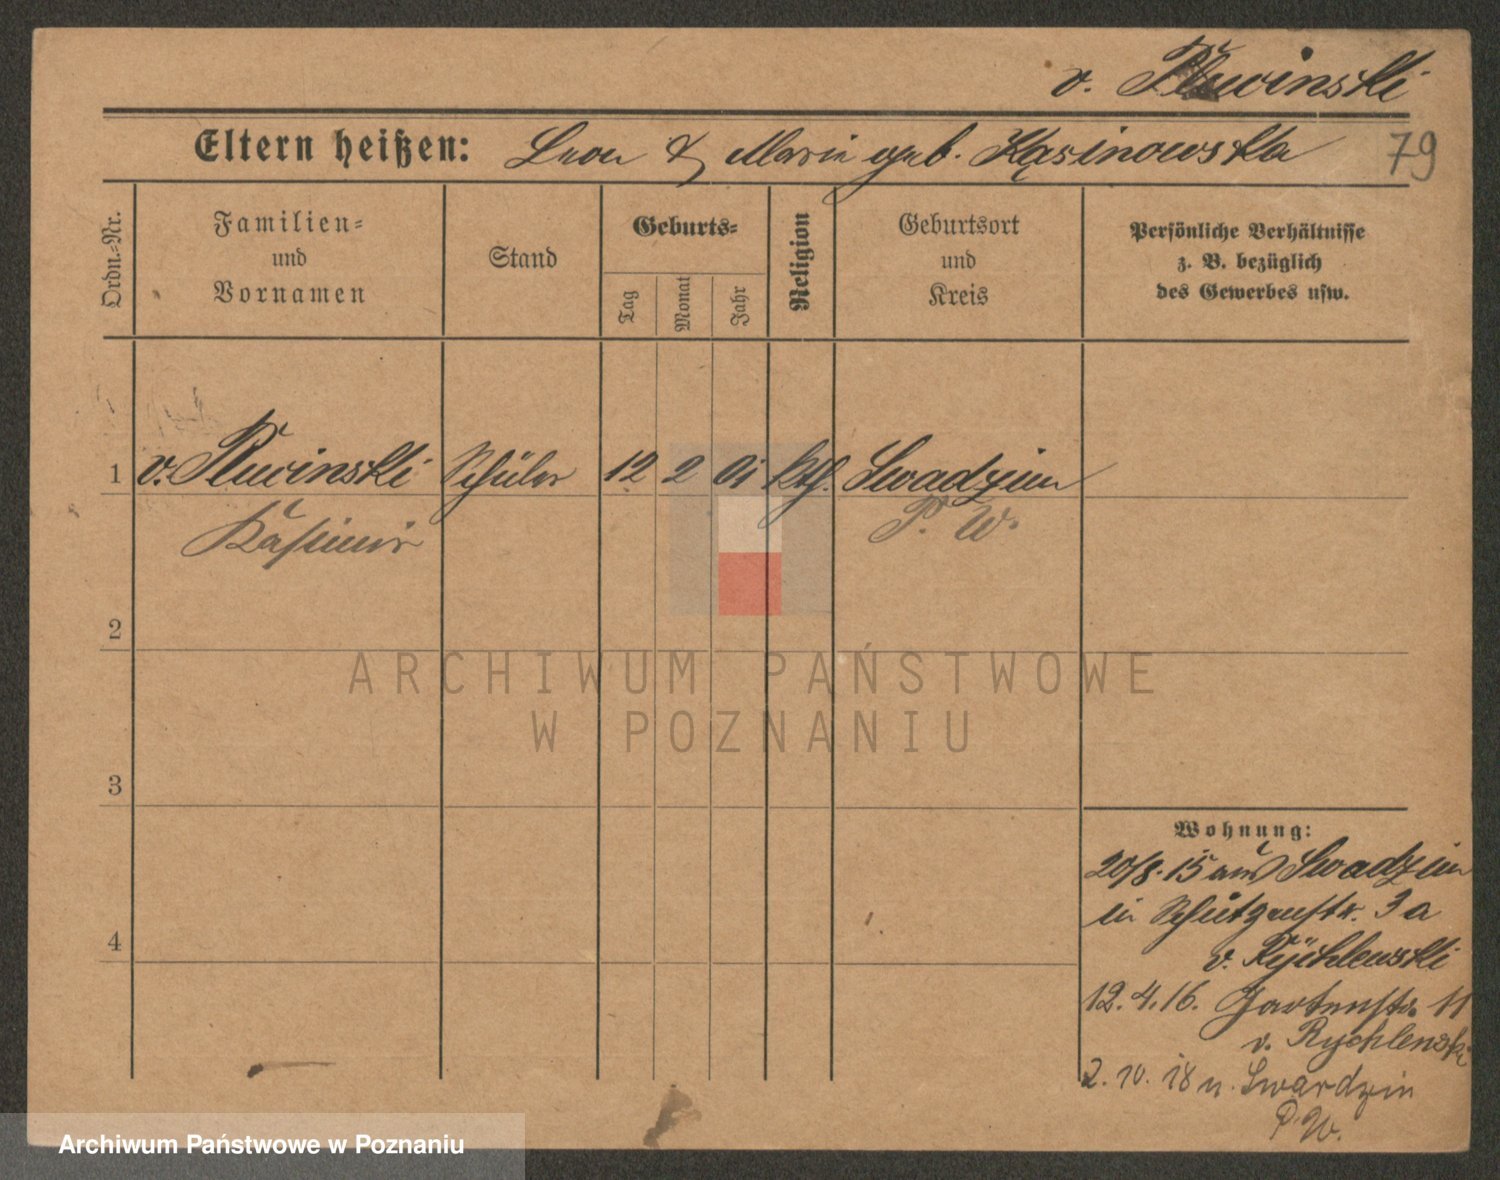 v. Pluciński
Eltern heißen: Leon & Maria geb. Kąsinowska 79
Ordn.-Nr.
Familien=
und
Vornamen
Stand
Geburts=
Tag
Monat
Jahr
Religion
Geburtsort
und
Kreis
Persönliche Verhältnisse
z. B. bezüglich
des Gewerbes usw.
1 v. Pluciński Schüler 12 2 01 kth. Swadzim
Kasimir P. W.
2
3
4
Wohnung:
20/8. 15 aus Swadzim
in Schützenstr. 3a
v. Rychlewski
12. 4. 16. Gartenstr. 11
v. Rychlewski
2. 10. 18 n. Swardzin
P. W.
ARCHIWUM PAŃSTWOWE
W POZNANIU
Archiwum Państwowe w Poznaniu